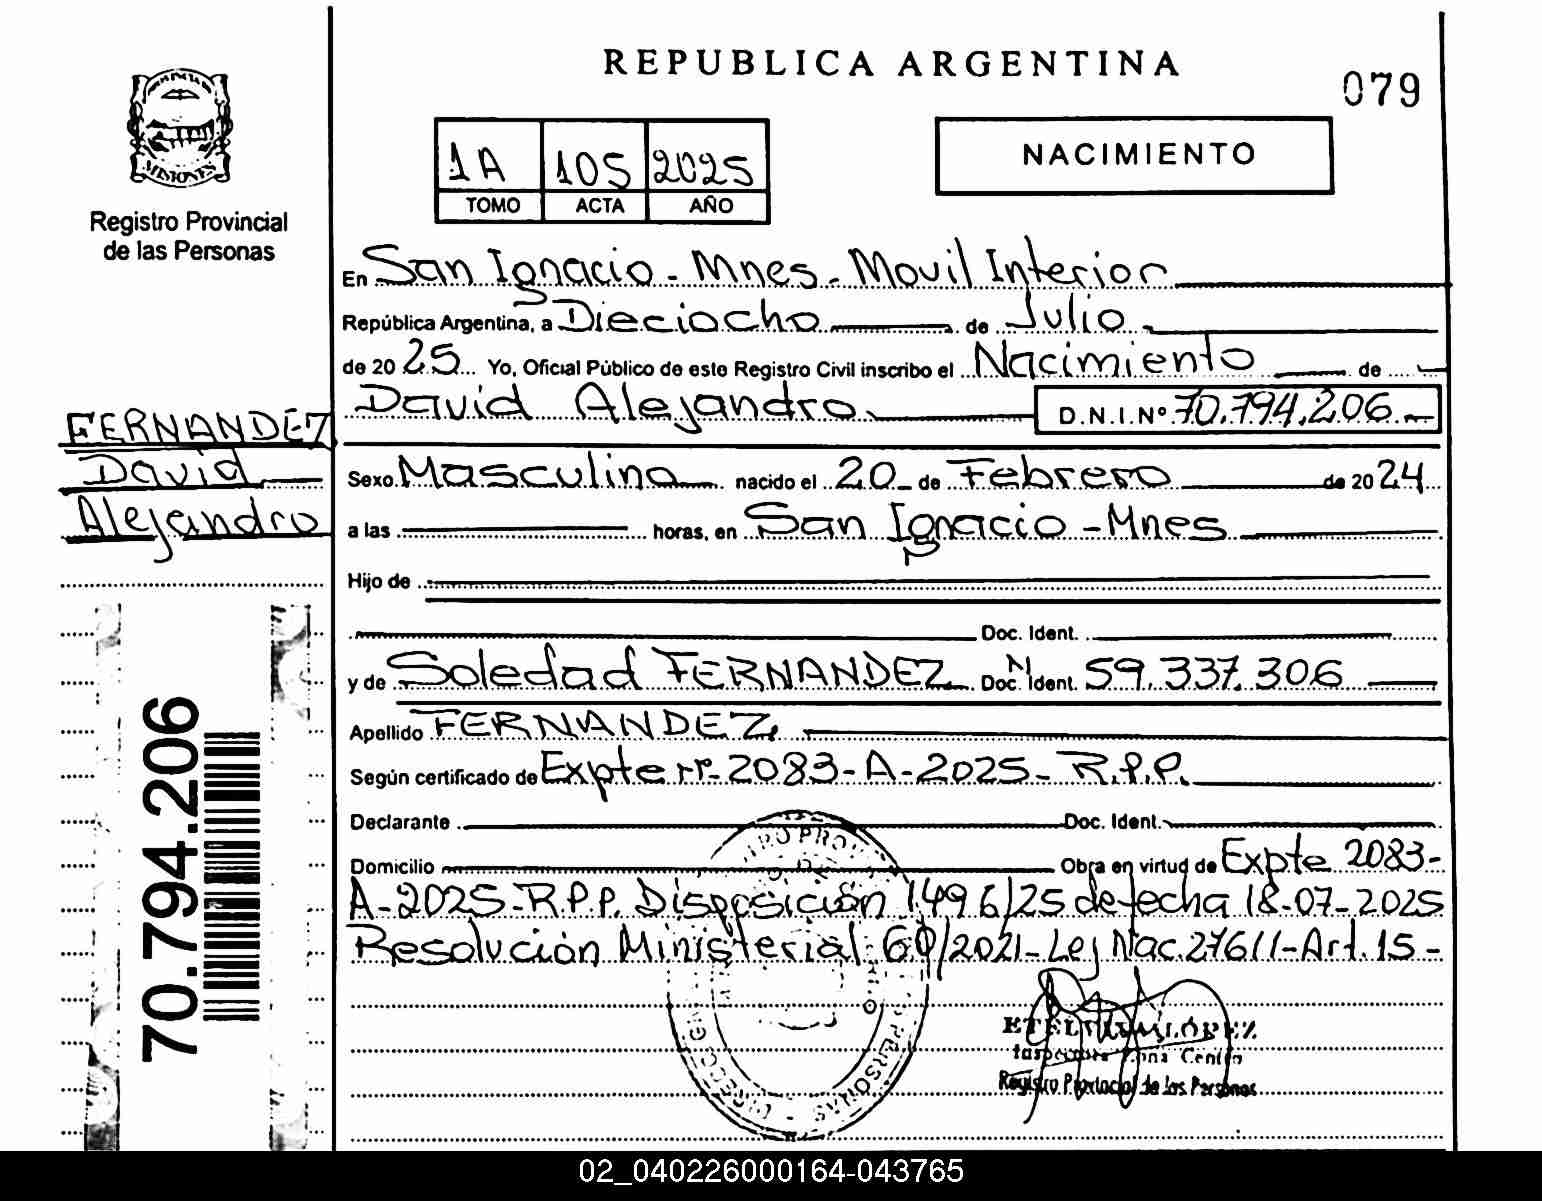 REPUBLICA ARGENTINA
079
MISIONES
Registro Provincial
de las Personas
1A 105 2025
TOMO ACTA AÑO
NACIMIENTO
En San Ignacio - Mnes - Movil Interior
República Argentina, a Dieciocho de Julio
de 2025 Yo, Oficial Público de este Registro Civil inscribo el Nacimiento de
David Alejandro D.N.I.Nº 70.794.206
FERNANDEZ
David
Alejandro
Sexo Masculino nacido el 20 de Febrero de 2024
a las horas, en San Ignacio - Mnes
Hijo de
Doc. Ident.
y de Soledad FERNANDEZ Doc. Ident. N 59.337.306
Apellido FERNANDEZ
Según certificado de Expte nº 2083-A-2025-R.P.P.
Declarante Doc. Ident.
Domicilio Obra en virtud de Expte 2083-
A-2025-R.P.P. Disposición 1496/25 de fecha 18-07-2025
Resolución Ministerial 60/2021-Ley Nac.27611-Art.15-
70.794.206
LÓPEZ
Zona Centro
Registro Provincial de las Personas
02_040226000164-043765